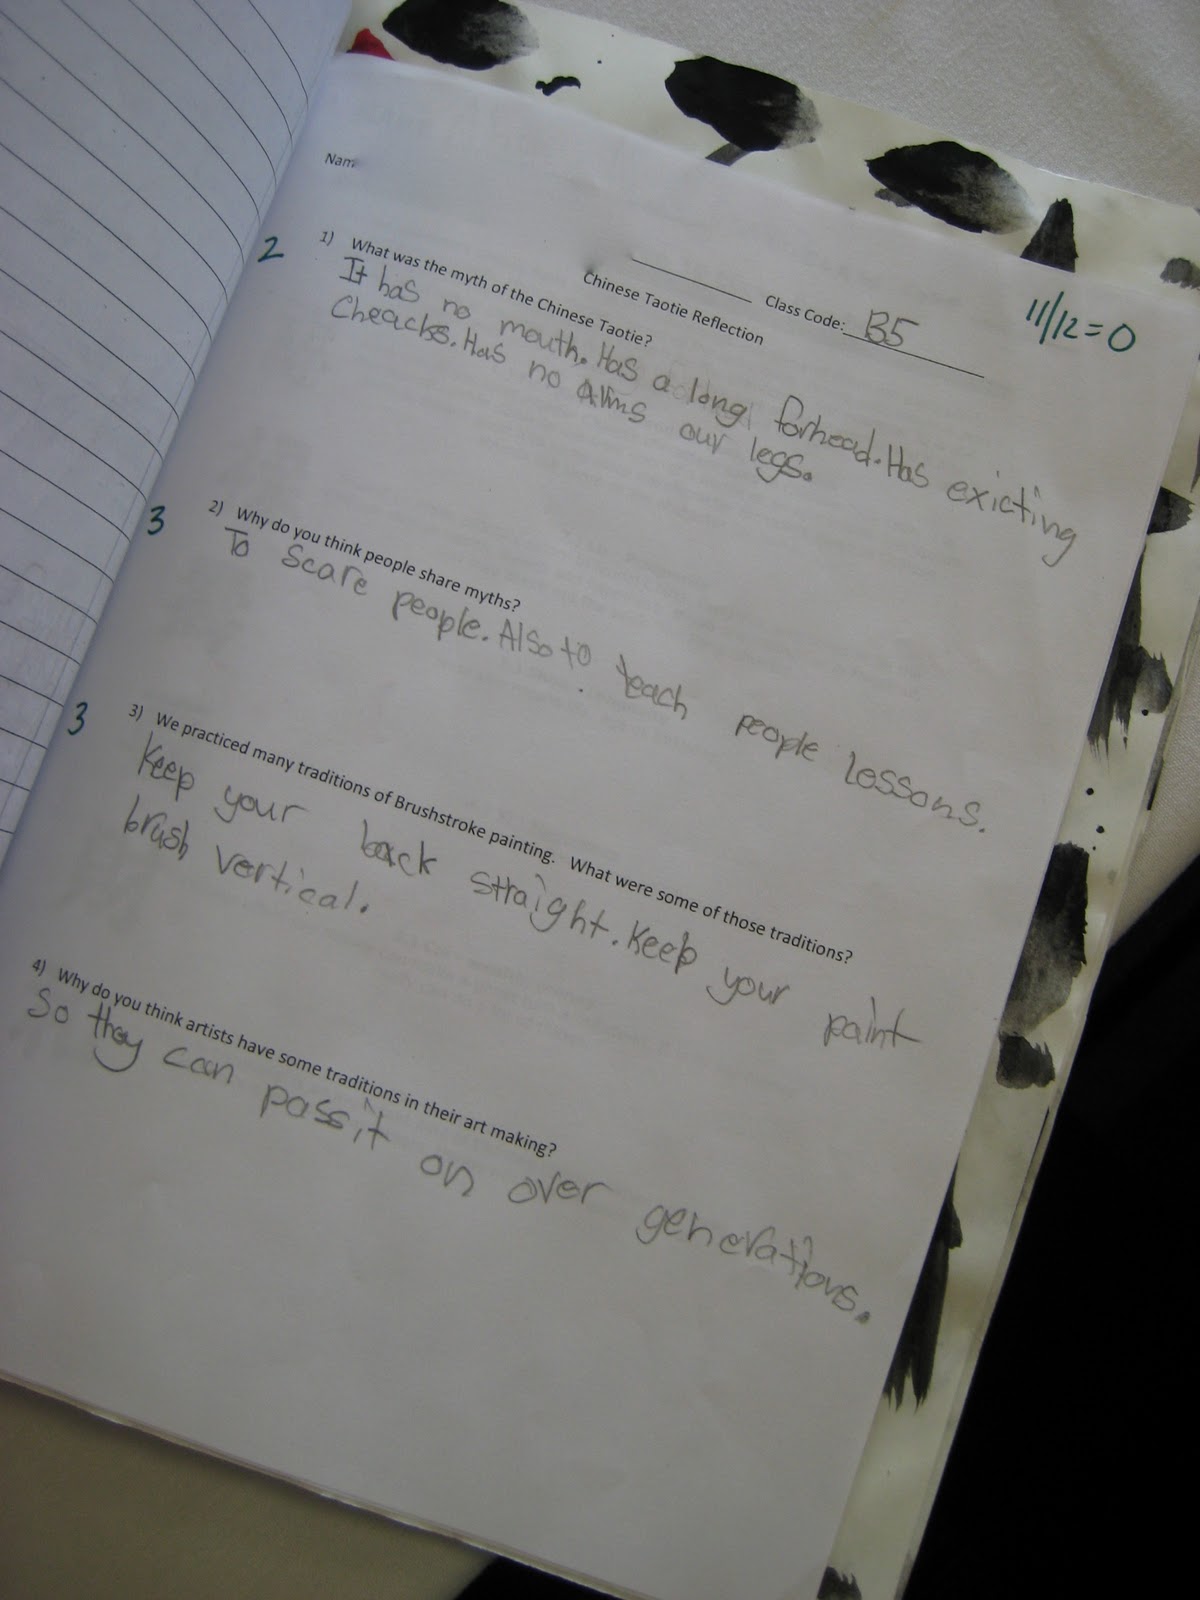 Nam
Class Code: B5
11/12=O
Chinese Taotie Reflection
2
1) What was the myth of the Chinese Taotie?
It has no mouth. Has a long forhead. Has exicting
Cheacks. Has no arms our legs.
3
2) Why do you think people share myths?
To scare people. Also to teach people lessons.
3
3) We practiced many traditions of Brushstroke painting. What were some of those traditions?
Keep your back straight. Keep your paint
brush vertical.
4) Why do you think artists have some traditions in their art making?
So they can pass it on over generations.